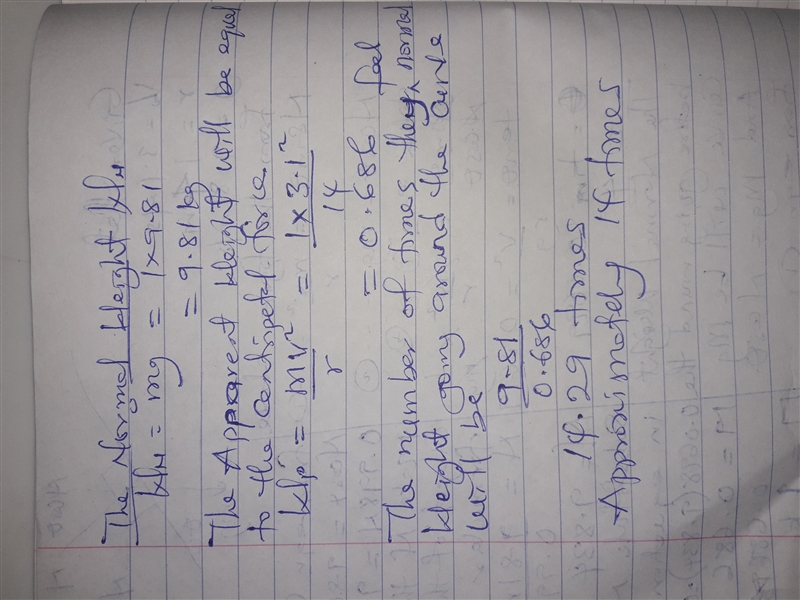 The Normal Weight WN
WN = mg = 1 x 9.81
= 9.81 kg
The Apparent Weight will be equal
to the centripetal force
Wp = mv² / r = 1 x 3.1² / 14
= 0.686
The number of times they feel
Weight going around the normal
will be circle
9.81 / 0.686
14.29 times
Approximately 14 times